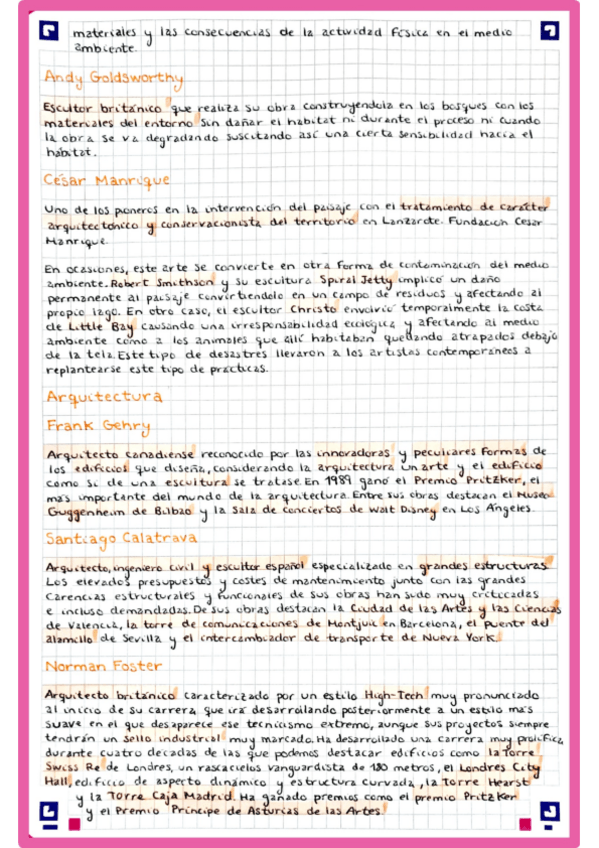 materiales y las consecuencias de la actividad física en el medio
ambiente.
Andy Goldsworthy
Escultor británico que realiza su obra construyendola en los bosques con los
materiales del entorno sin dañar el habitat ni durante el proceso ni cuando
la obra se va degradando suscitando así una cierta sensibilidad hacia el
habitat.
César Manrique
Uno de los pioneros en la intervención del paisaje con el tratamiento de carácter
arquitectónico y conservacionista del territorio en Lanzarote. Fundación Cesar
Manrique.
En ocasiones, este arte se convierte en otra forma de contaminación del medio
ambiente. Robert Smithson y su escultura Spiral Jetty implicó un daño
permanente al paisaje convirtiendolo en un campo de residuos y afectando al
propio lago. En otro caso, el escultor Christo envolvió temporalmente la costa
de Little Bay causando una irresponsabilidad ecológica y afectando al medio
ambiente como a los animales que allí habitaban quedando atrapados debajo
de la tela. Este tipo de desastres llevaron a los artistas contemporáneos a
replantearse este tipo de prácticas.
Arquitectura
Frank Gehry
Arquitecto canadiense reconocido por las innovadoras y peculiares formas de
los edificios que diseña, considerando la arquitectura un arte y el edificio
como si de una escultura se tratase. En 1989 ganó el Premio Pritzker, el
más importante del mundo de la arquitectura. Entre sus obras destacan el Museo
Guggenheim de Bilbao y la Sala de conciertos de Walt Disney en Los Ángeles.
Santiago Calatrava
Arquitecto, ingeniero civil y escultor español especializado en grandes estructuras.
Los elevados presupuestos y costes de mantenimiento junto con las grandes
carencias estructurales y funcionales de sus obras han sido muy criticadas
e incluso demandadas. De sus obras destacan la Ciudad de las Artes y las Ciencias
de Valencia, la torre de comunicaciones de Montjuic en Barcelona, el puente del
alamillo de Sevilla y el intercambiador de transporte de Nueva York.
Norman Foster
Arquitecto británico caracterizado por un estilo High-Tech muy pronunciado
al inicio de su carrera que irá desarrollando posteriormente a un estilo más
suave en el que desaparece ese tecnicismo extremo, aunque sus proyectos siempre
tendrán un sello industrial muy marcado. Ha desarrollado una carrera muy prolífica
durante cuatro décadas de las que podemos destacar edificios como la Torre
Swiss Re de Londres, un rascacielos vanguardista de 180 metros, el Londres City
Hall, edificio de aspecto dinámico y estructura curvada, la Torre Hearst
y la Torre Caja Madrid. Ha ganado premios como el premio Pritzker
y el Premio Príncipe de Asturias de las Artes.